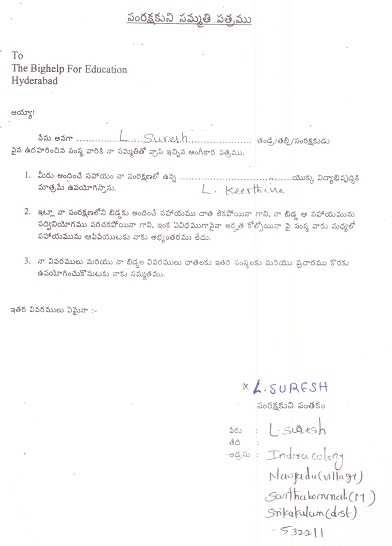 సంరక్షకుని సమ్మతి పత్రము
To
The Bighelp For Education
Hyderabad
అయ్యా!
నేను అనగా ........ L. Suresh ........ తండ్రి/తల్లి/సంరక్షకుడు
పైన ఉదహరించిన సంస్థ వారికి నా సమ్మతితో వ్రాసి ఇచ్చిన అంగీకార పత్రము.
1. మీరు అందించే సహాయం నా సంరక్షణలో ఉన్న ........ యొక్క విద్యాభివృద్ధికి
మాత్రమే ఉపయోగిస్తాను. L. Keerthina
2. ఇట్లా నా సంరక్షణలోని బిడ్డకు అందించే సహాయము దాత లేకపోయినా గాని, నా బిడ్డ ఆ సహాయమును
సద్వినియోగము పరచకపోయినా గాని, ఇంకే విధముగానైనా అర్హత కోల్పోయినా పై సంస్థ వారు మధ్యలో
సహాయమును ఆపివేయుటకు నాకు అభ్యంతరము లేదు.
3. నా వివరములు మరియు నా బిడ్డల వివరములు దాతలకు ఇతర సంస్థలకు మరియు ప్రచారము కొరకు
ఉపయోగించుకొనుటకు నాకు సమ్మతము.
ఇతర వివరములు ఏమైనా :-
x L.SURESH
సంరక్షకుని సంతకం
పేరు : L.suresh
తేది :
అడ్రసు : Indira colony
(village)
(M)
Srikakulam(dist)
-532211